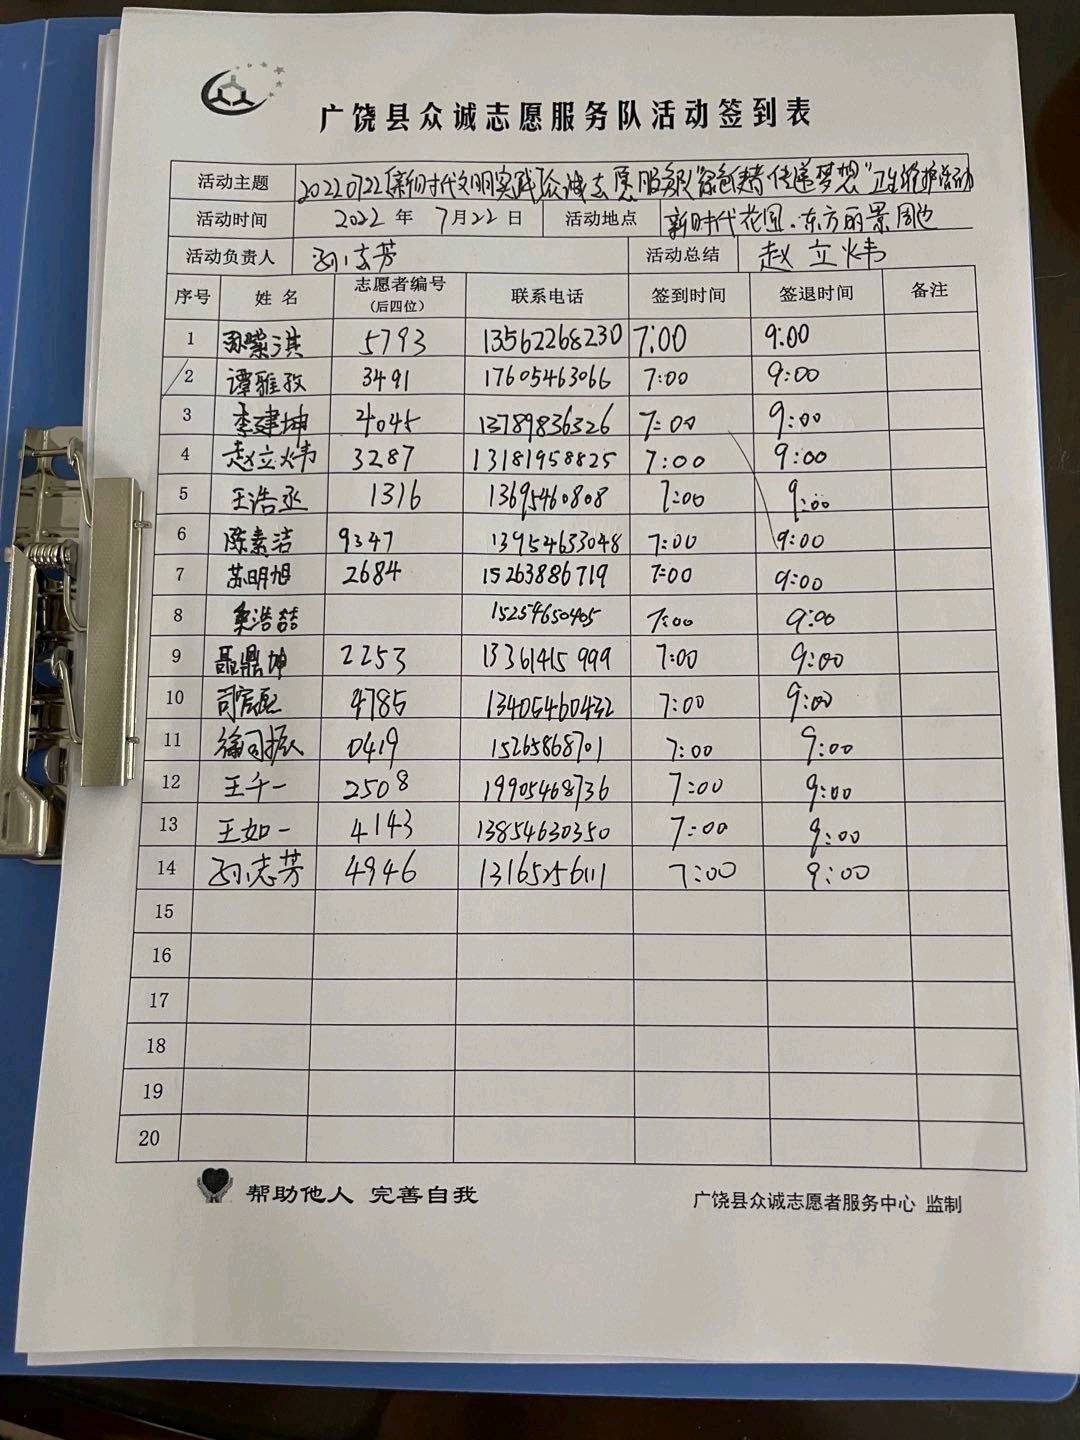 广饶县众诚志愿服务队活动签到表
活动主题 20220722[新时代文明实践]众诚志愿服务队“ 传递梦想”卫生维护活动
活动时间 2022年 7月22日 活动地点 新时代花园、东方丽景周边
活动负责人 孙志芳 活动总结 赵立炜
序号 姓名 志愿者编号(后四位) 联系电话 签到时间 签退时间 备注
1 5793 13562268230 7:00 9:00
2 谭雅孜 3491 17605463066 7:00 9:00
3 李建坤 4045 13789836326 7:00 9:00
4 赵立炜 3287 13181958825 7:00 9:00
5 王浩丞 1316 13695460808 7:00 9:00
6 陈素洁 9347 13954633048 7:00 9:00
7 苏明旭 2684 15263886719 7:00 9:00
8 桑浩喆 15254650405 7:00 9:00
9 聂鼎坤 2253 13361415999 7:00 9:00
10 4785 13405460432 7:00 9:00
11 徐司振 0419 15265868701 7:00 9:00
12 王千一 2508 19905468736 7:00 9:00
13 王如一 4143 13854630350 7:00 9:00
14 孙志芳 4946 13165256111 7:00 9:00
15
16
17
18
19
20
帮助他人 完善自我
广饶县众诚志愿者服务中心 监制